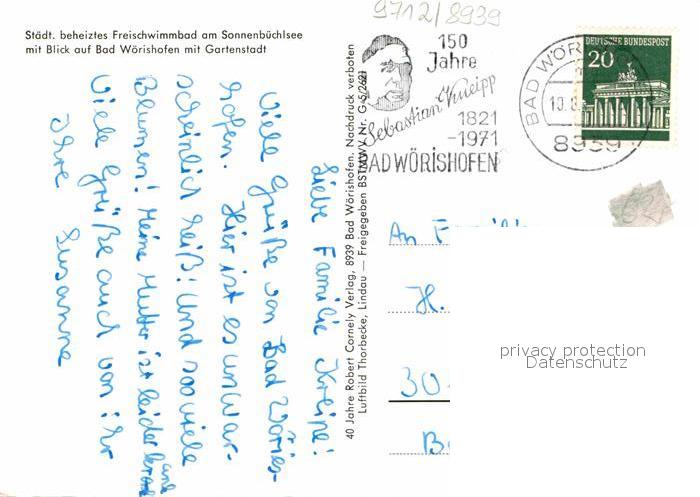 Städt. beheiztes Freischwimmbad am Sonnenbüchlsee
mit Blick auf Bad Wörishofen mit Gartenstadt
9712/8939
150
Jahre
Sebastian Kneipp
1821
-1971
BAD WÖRISHOFEN
BAD WÖR
10.8
8939
DEUTSCHE BUNDESPOST
20
40 Jahre Robert Cornely Verlag, 8939 Bad Wörishofen. Nachdruck verboten
Luftbild Thorbecke, Lindau — Freigegeben BSTMWV. Nr. G-5/2621
Liebe Familie Kreipe!
Viele Grüße von Bad Wöris-
hofen. Hier ist es unwar-
scheinlich heiß! Und soo viele
Blumen! Meine Mutter ist leider krank
und
Viele Grüße auch von ihr
Ihre Susanne
An F
H.
30
B
privacy protection
Datenschutz